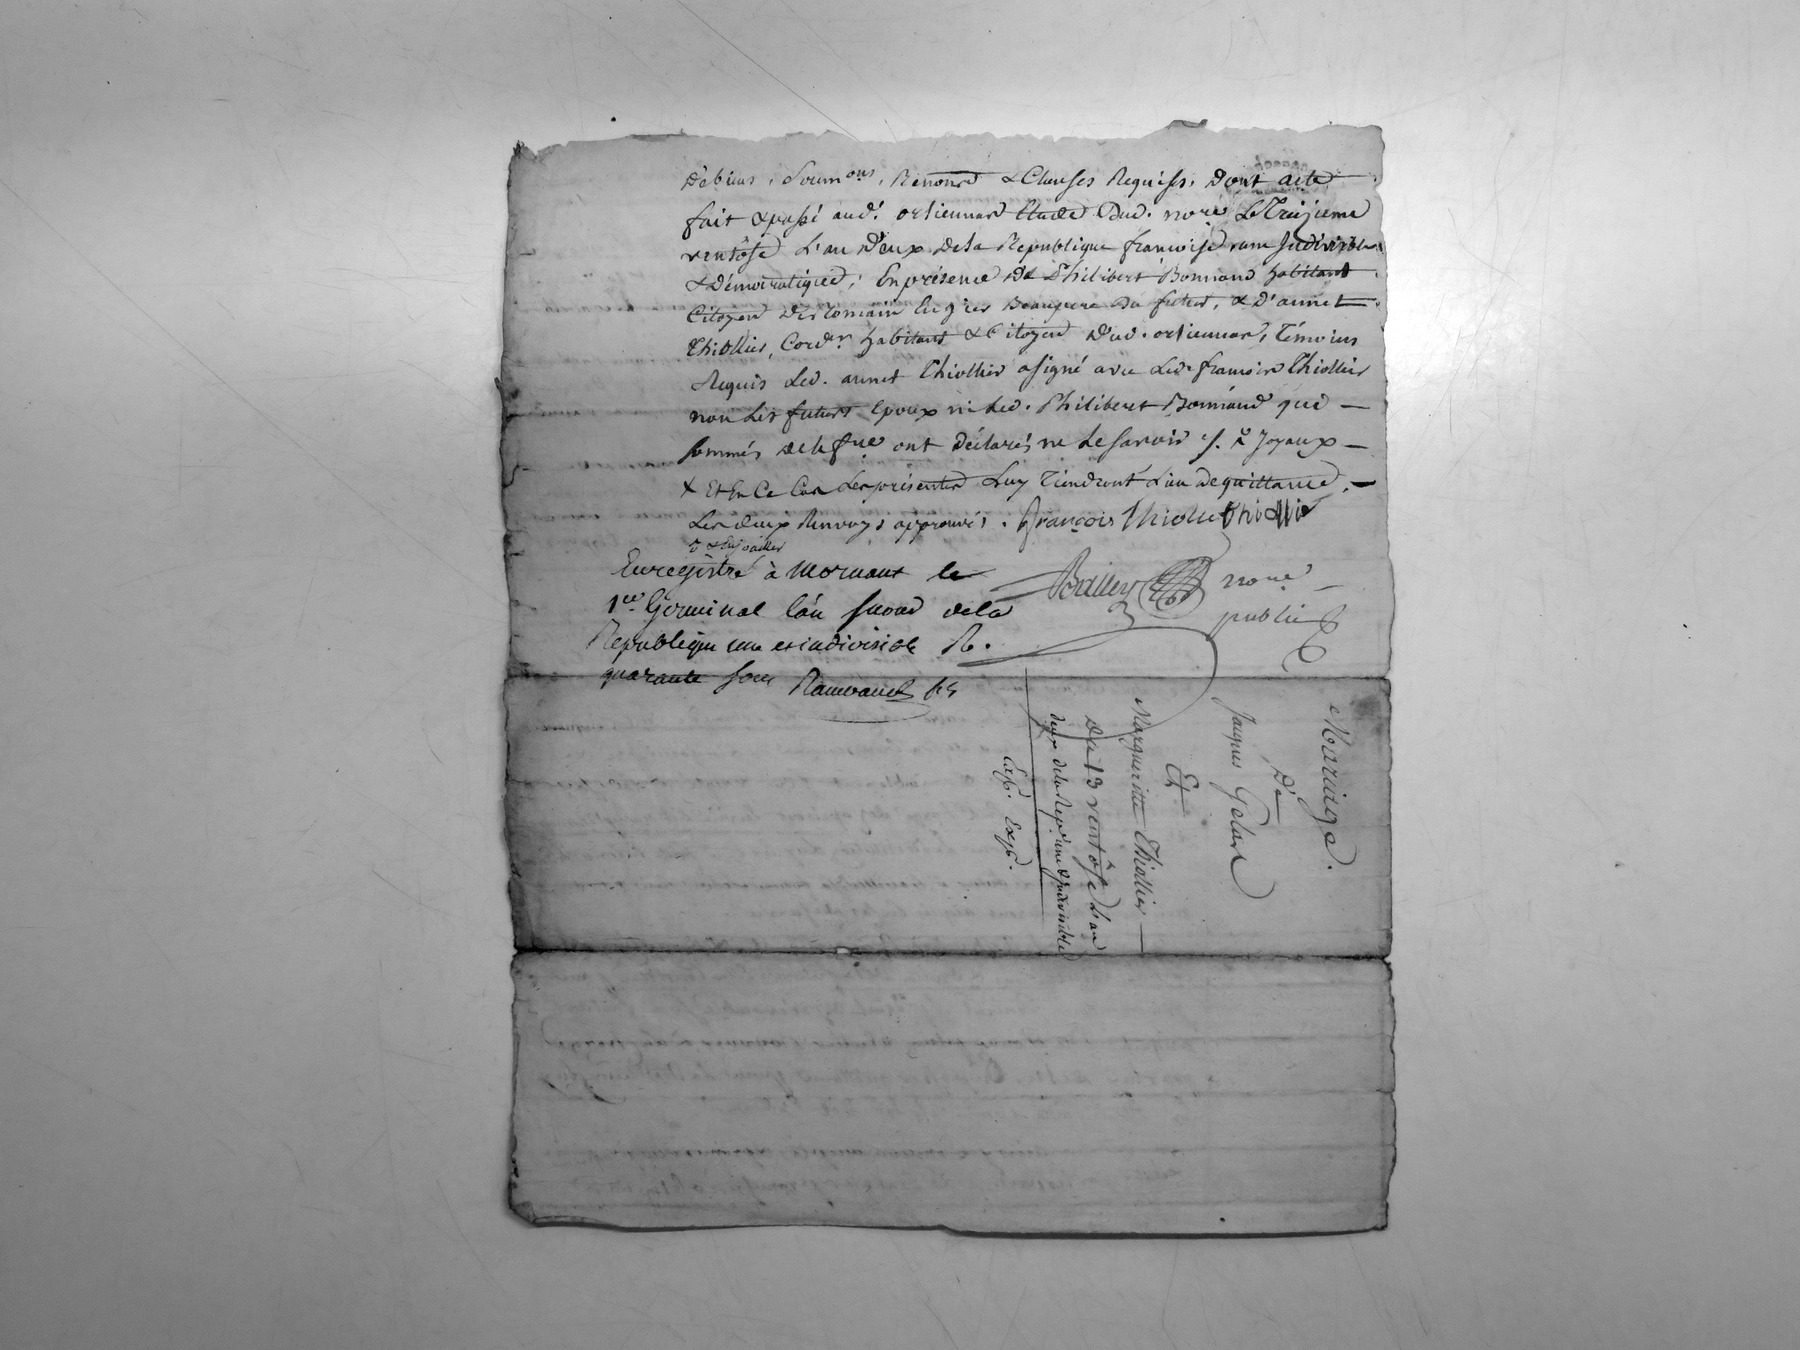 De biens, Soumons, Renonce & Clauses Requises, Dont acte
fait & passé aud. orliennas Etude Dud. nore Le Treizieme
ventôse L'an Deux Dela Republique francoise une Indivisible
& Démocratique; En présence De Philibert Bonnand habitant
Citoyen De Beaupere Du futur, & D'annet
Thiollier, Cordr habitant & Citoyen Dud. orliennas, Témoins
Requis Led. annet Thiollier a signé avec Led. francois Thiollier
non Les futurs Epoux ni Led. Philibert Bonnand que —
sommés De le fre ont déclarés ne Le savoir Joyaux —
& En Ce Cas Les présentes Luy Tiendront Lieu De quittance. —
Les deux Renvoys approuvés. François Thiollie Thiollie
Enregistré à Mornant le
1er Germinal L'an second dela
Republique une et indivisible R.
quarante sous
Bailley nore
public
Mariage.
De
Jaques Gelas
Et
Margueritte Thiollier —
Du 13 ventôse L'an
deux dela Repe une & Indivisible
Exp.